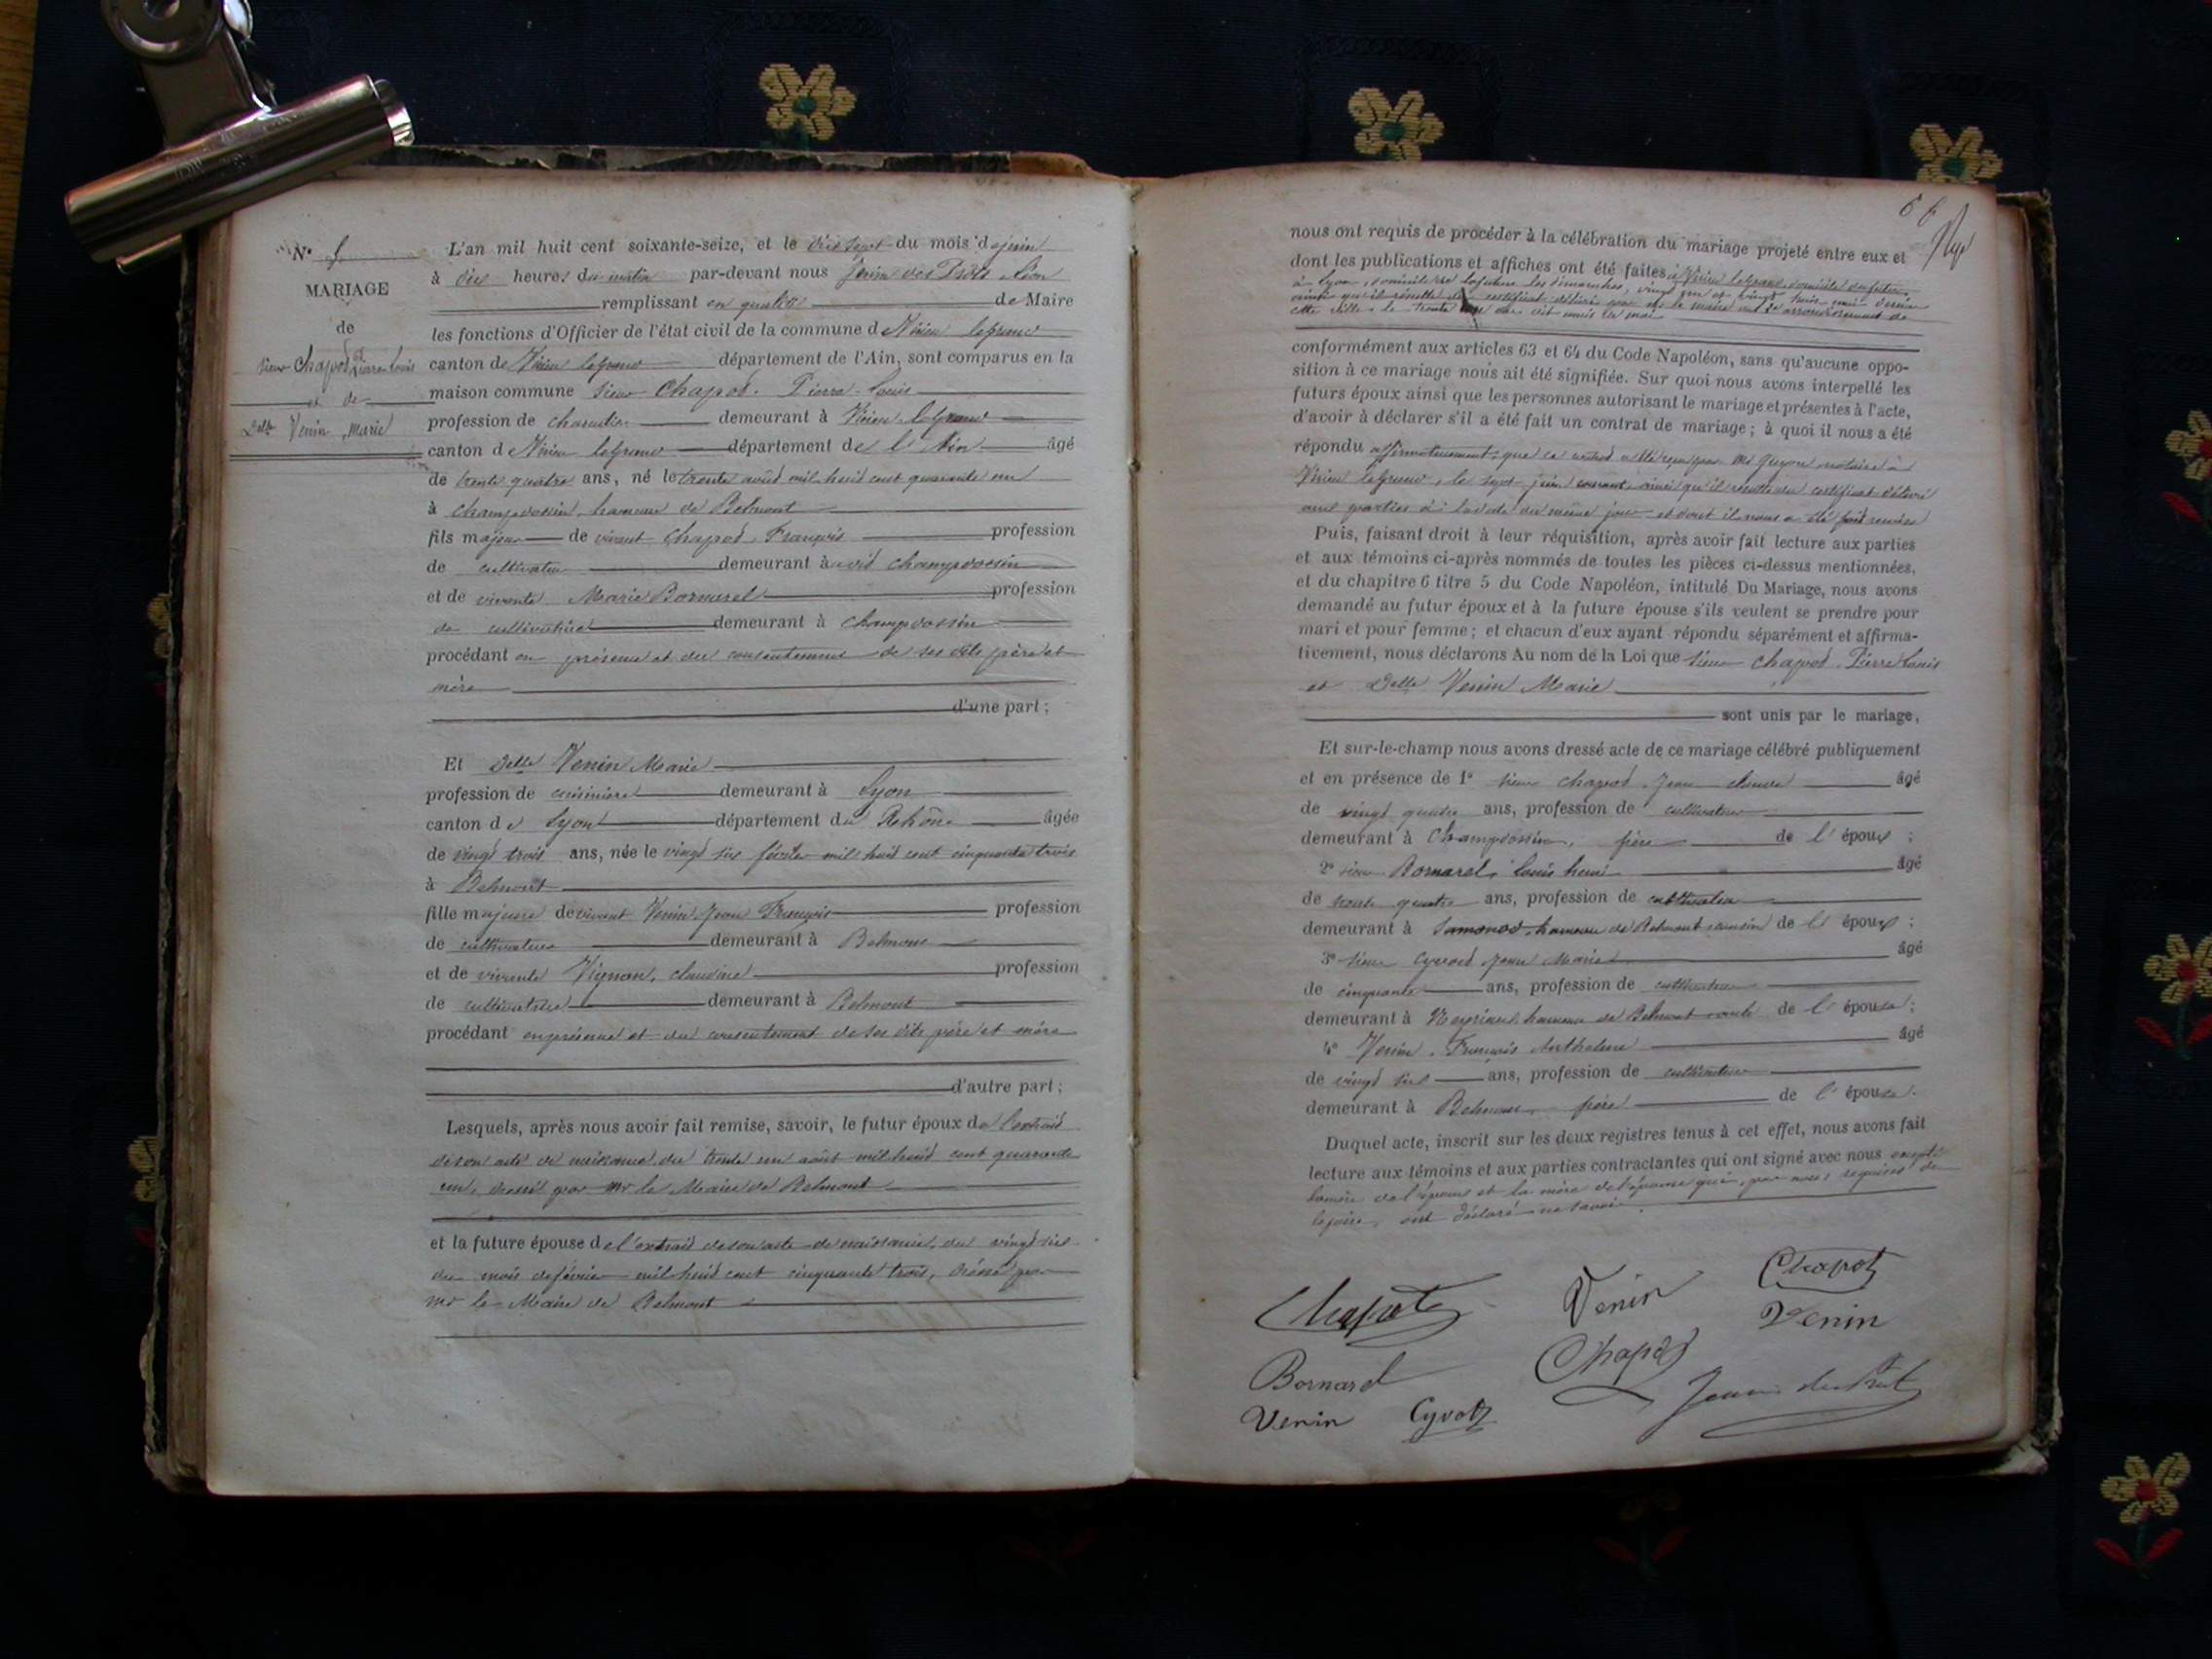 N°
MARIAGE
de
Sieur Chapot Pierre Louis
et de
Delle Venin, Marie
L'an mil huit cent soixante-seize, et le dix sept du mois de juin
à dix heures du matin par-devant nous
remplissant en qualité de Maire
les fonctions d'Officier de l'état civil de la commune de Virieu legrand
canton de Virieu legrand département de l'Ain, sont comparus en la
maison commune Sieur Chapot. Pierre-Louis
profession de demeurant à Virieu-legrand
canton de Virieu legrand département de l'Ain âgé
de trente quatre ans, né le trente août mil huit cent quarante un
à Champdossin, hameau de Belmont
fils majeur de vivant Chapot, François profession
de cultivateur demeurant audit Champdossin
et de vivante Marie Bornarel profession
de cultivatrice demeurant à Champdossin
procédant en présence et du consentement de ses dits père et
mère
d'une part;
Et Delle Venin Marie
profession de cuisinière demeurant à Lyon
canton de Lyon département du Rhône âgée
de vingt trois ans, née le vingt six février mil huit cent cinquante trois
à Belmont
fille majeure de vivant Venin, Jean François profession
de cultivateur demeurant à Belmont
et de vivante Vignon, claudine profession
de cultivatrice demeurant à Belmont
procédant en présence et du consentement de ses dits père et mère
d'autre part;
Lesquels, après nous avoir fait remise, savoir, le futur époux de l'extrait
de son acte de naissance du trente un août mil huit cent quarante
un, dressé par Mr le Maire de Belmont
et la future épouse de l'extrait de son acte de naissance, du vingt six
du mois de février mil huit cent cinquante trois, dressé par
Mr le Maire de Belmont
66
nous ont requis de procéder à la célébration du mariage projeté entre eux et
dont les publications et affiches ont été faites à Virieu legrand, domicile du futur
à Lyon, domicile de la future les dimanches, vingt un et vingt huit mai dernier
ainsi qu'il résulte du certificat délivré par le maire du arrondissement de
cette ville le trente mai
conformément aux articles 63 et 64 du Code Napoléon, sans qu'aucune oppo-
sition à ce mariage nous ait été signifiée. Sur quoi nous avons interpellé les
futurs époux ainsi que les personnes autorisant le mariage et présentes à l'acte,
d'avoir à déclarer s'il a été fait un contrat de mariage; à quoi il nous a été
répondu affirmativement, que ce contrat a été reçu par Me Guyon notaire à
Virieu legrand, le sept juin courant, ainsi qu'il résulte du certificat délivré
aux parties à la date du même jour et dont il nous a été fait remise
Puis, faisant droit à leur réquisition, après avoir fait lecture aux parties
et aux témoins ci-après nommés de toutes les pièces ci-dessus mentionnées,
et du chapitre 6 titre 5 du Code Napoléon, intitulé Du Mariage, nous avons
demandé au futur époux et à la future épouse s'ils veulent se prendre pour
mari et pour femme; et chacun d'eux ayant répondu séparément et affirma-
tivement, nous déclarons Au nom de la Loi que Sieur Chapot. Pierre Louis
et Delle Venin Marie
sont unis par le mariage,
Et sur-le-champ nous avons dressé acte de ce mariage célébré publiquement
et en présence de 1° Sieur Chapot, Jean claude âgé
de vingt quatre ans, profession de cultivateur
demeurant à Champdossin, frère de l'époux;
2° Sieur Bornarel, Louis henri âgé
de trente quatre ans, profession de cultivateur
demeurant à hameau de Belmont cousin de l'époux;
3° Sieur Cyvoct Jean Marie âgé
de cinquante ans, profession de cultivateur
demeurant à hameau de Belmont oncle de l'épouse;
4° Venin, François Anthelme âgé
de vingt six ans, profession de cultivateur
demeurant à Belmont frère de l'épouse.
Duquel acte, inscrit sur les deux registres tenus à cet effet, nous avons fait
lecture aux témoins et aux parties contractantes qui ont signé avec nous excepté
la mère de l'époux et la mère de l'épouse qui, par nous requises de
le faire, ont déclaré ne savoir.
Chapot Venin Chapot
Venin
Bornarel Chapot
Venin Cyvoct